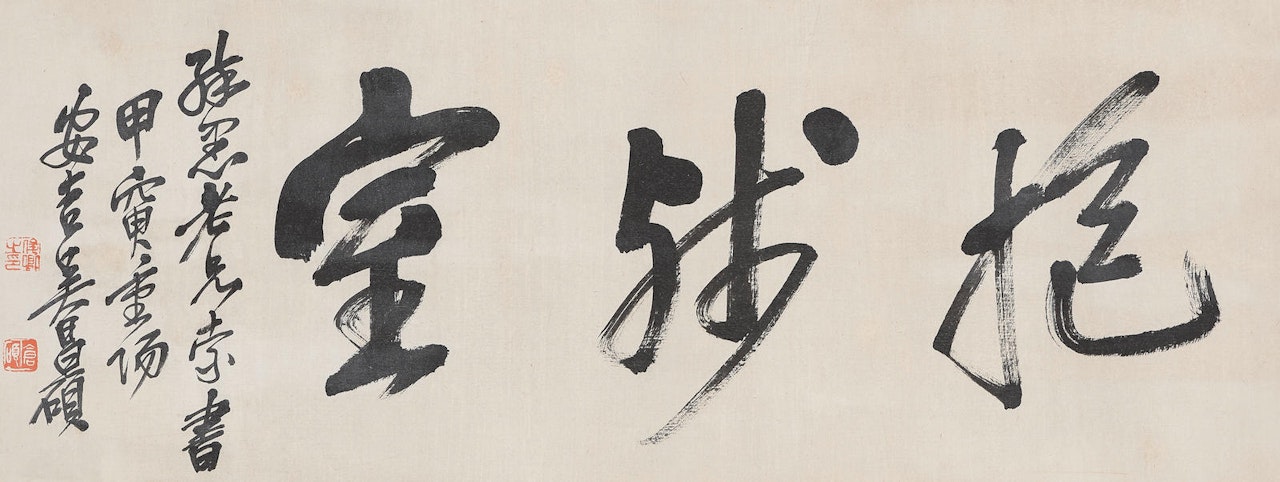 抱殘室
老兄索書
甲寅重陽
安吉吳昌碩
俊卿之印
倉碩